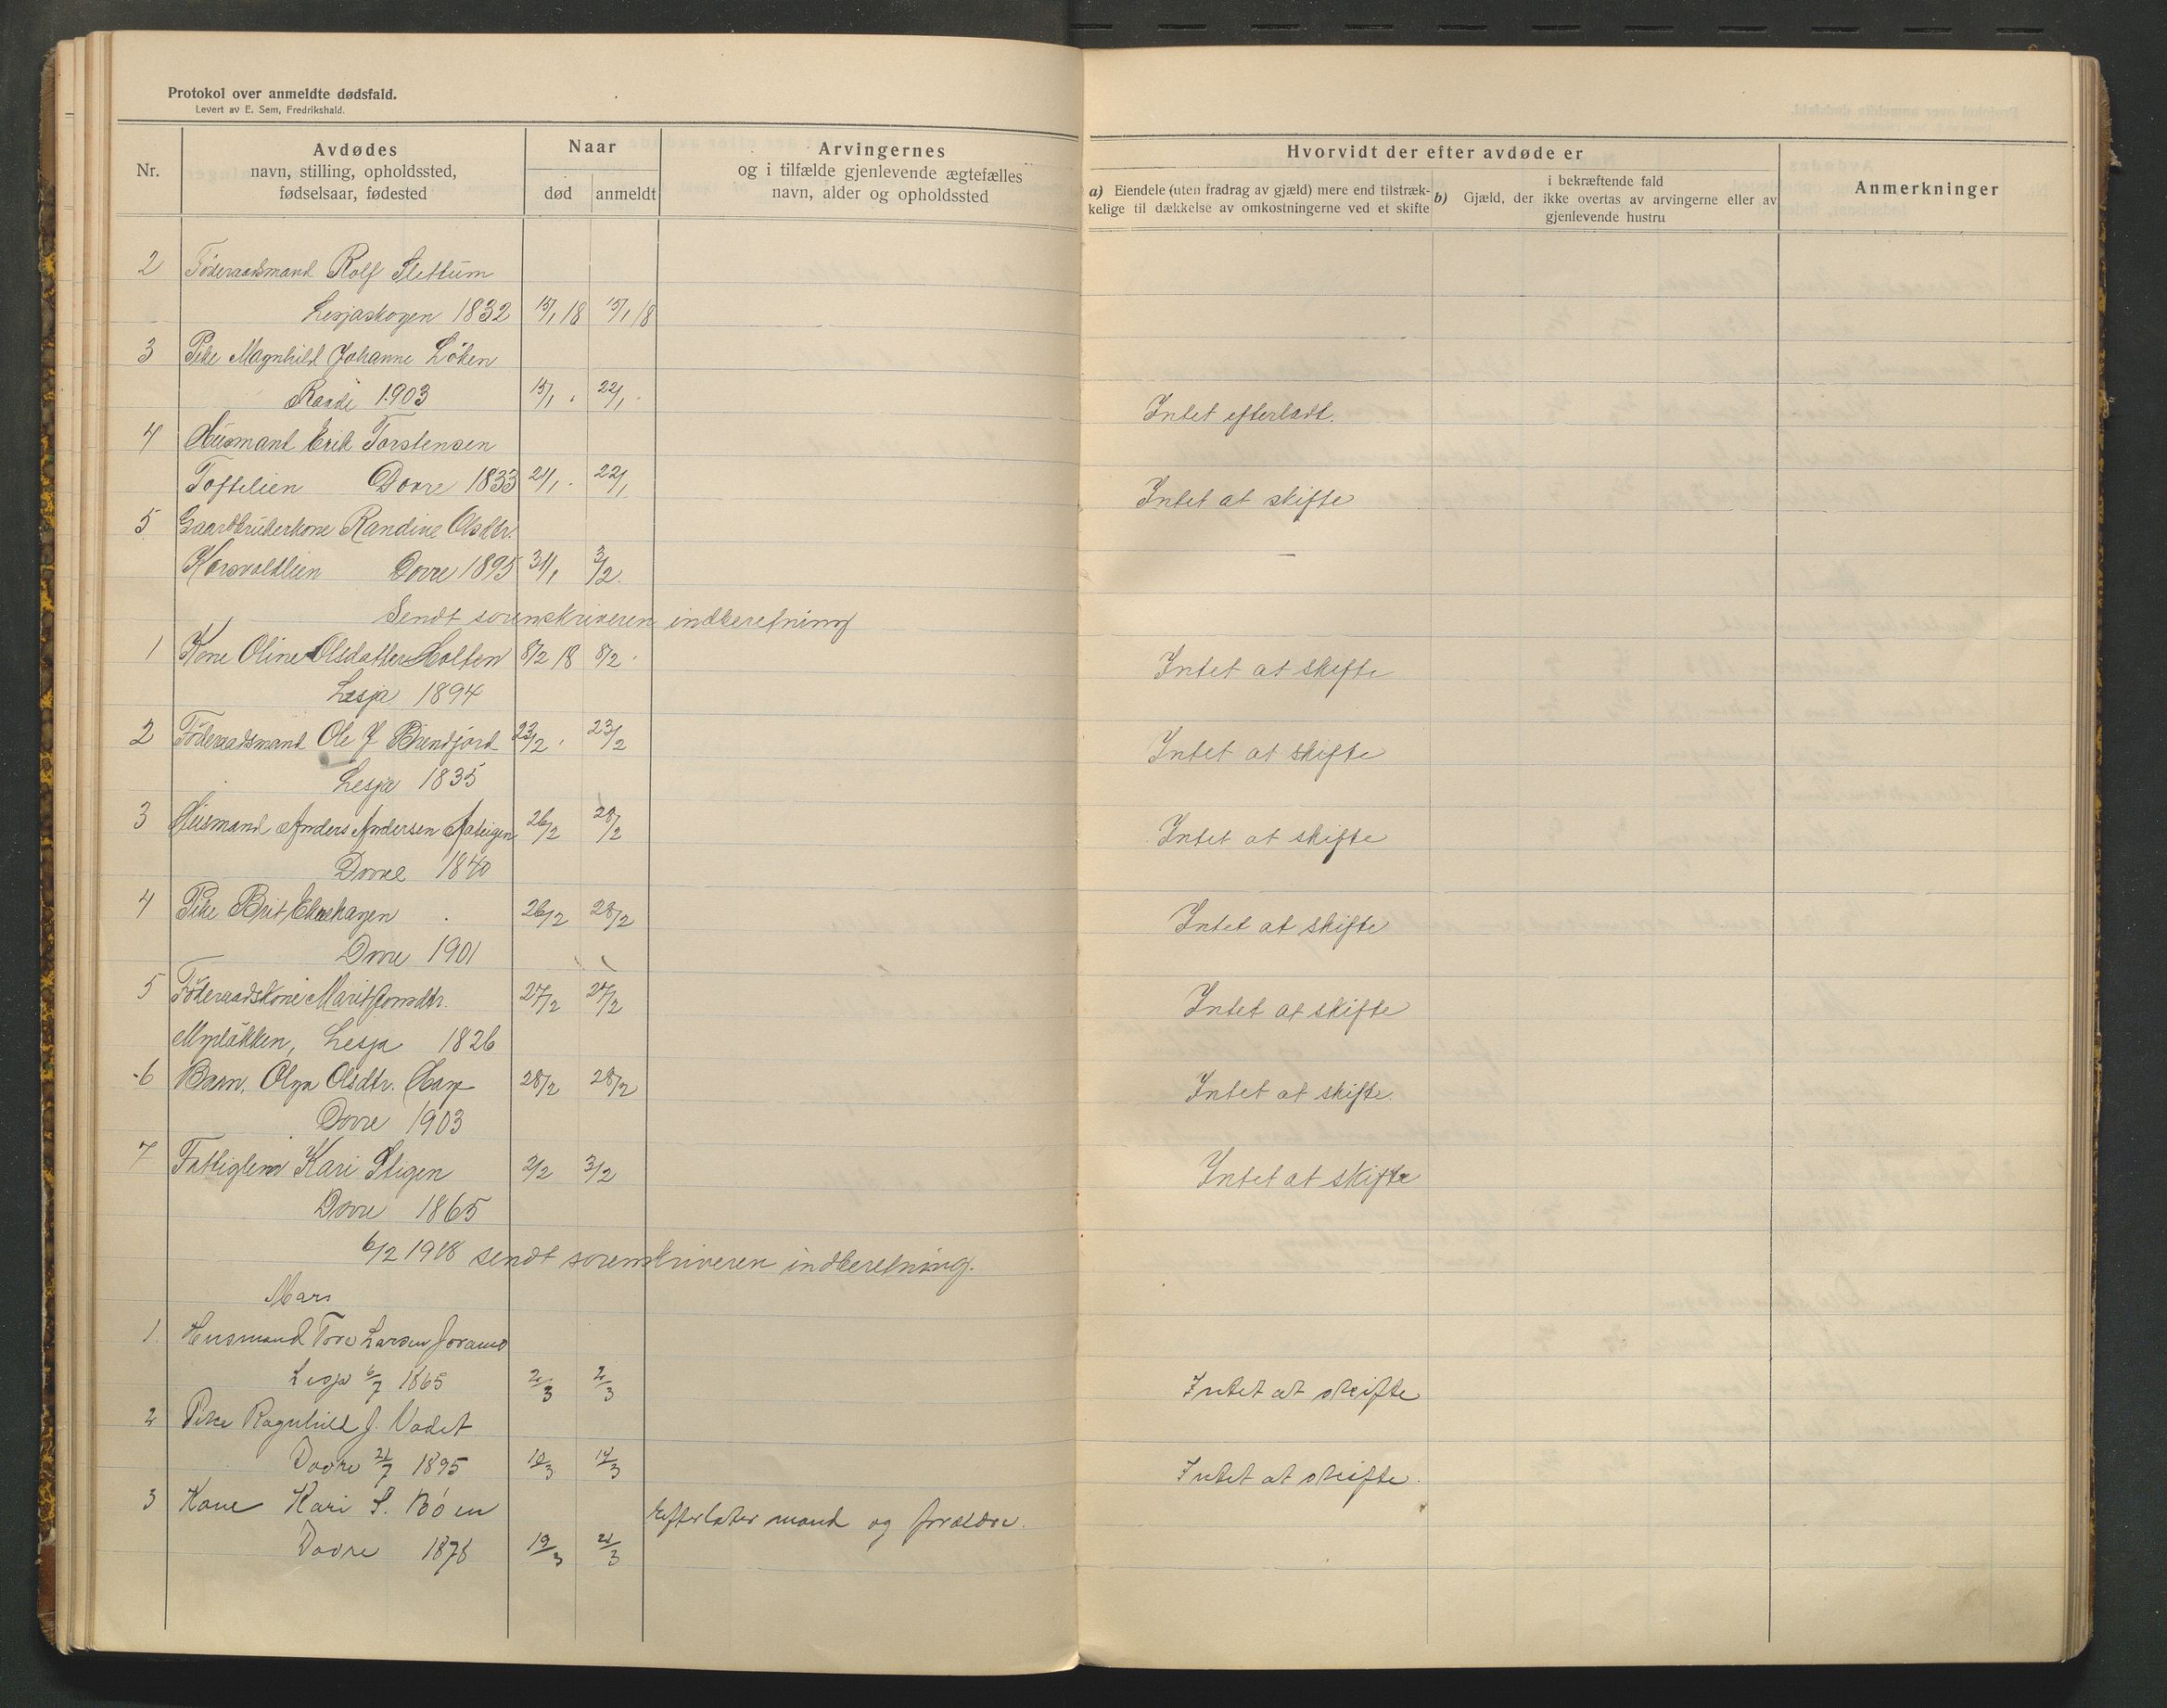 Protokol over anmeldte dødsfald.
Levert av E. Sem, Fredrikshald.
Nr.
Avdødes
navn, stilling, opholdssted,
fødselsaar, fødested
Naar
død
anmeldt
Arvingernes
og i tilfælde gjenlevende ægtefælles
navn, alder og opholdssted
Hvorvidt der efter avdøde er
a) Eiendele (uten fradrag av gjæld) mere end tilstræk-
kelige til dækkelse av omkostningerne ved et skifte
i bekræftende fald
b) Gjæld, der ikke overtas av arvingerne eller av
gjenlevende hustru
Anmerkninger
2 Föderaadsmand Rolf Slettum
Lesjaskogen 1832 15/1 18 15/1 18
3 Pike Magnhild Johanne Löken
1903 15/1 . 22/1 . Intet efterladt.
4 Husmand Erik Torstensen
Toftelien Dovre 1833 21/1 . 22/1 Intet at skifte
5 Gaardbrukerkone Randine Olsdtr.
Korsvoldlien Dovre 1895 31/1 3/2. —
Sendt sorenskriveren indberetning
1 Kone Oline Olsdatter Holten 8/2 18 8/2 . Intet at skifte
Lesja 1894
2 Föderaadsmand Ole J 23/2 . 23/2 Intet at skifte
Lesja 1835
3 Husmand Anders Andersen 26/2 28/2 Intet at skifte
Dovre 1840
4 Pike Brit 26/2 28/2 Intet at skifte
Dovre 1901
5 Föderaadskone Marit Jonsdtr. 27/2 27/2 Intet at skifte
Lesja 1826
6 Barn, Olga Olsdtr. 28/2 28/2 Intet at skifte.
Dovre 1903
7 Fattiglem Kari Stigen 2/2 3/2 Intet at skifte
Dovre 1865
6/2 1918 sendt sorenskriveren indberetning.
Mars
1. Husmand Tore Larsen Joramo
Lesja 6/7 1865 2/3 2/3 Intet at skifte
2 Pike Ragnhild J. Vadet
Dovre 21/7 1895 12/3 14/3 Intet at skifte.
3 Kone Kari S. Böen Efterlater mand og foreldre.
Dovre 1878 19/3 21/3